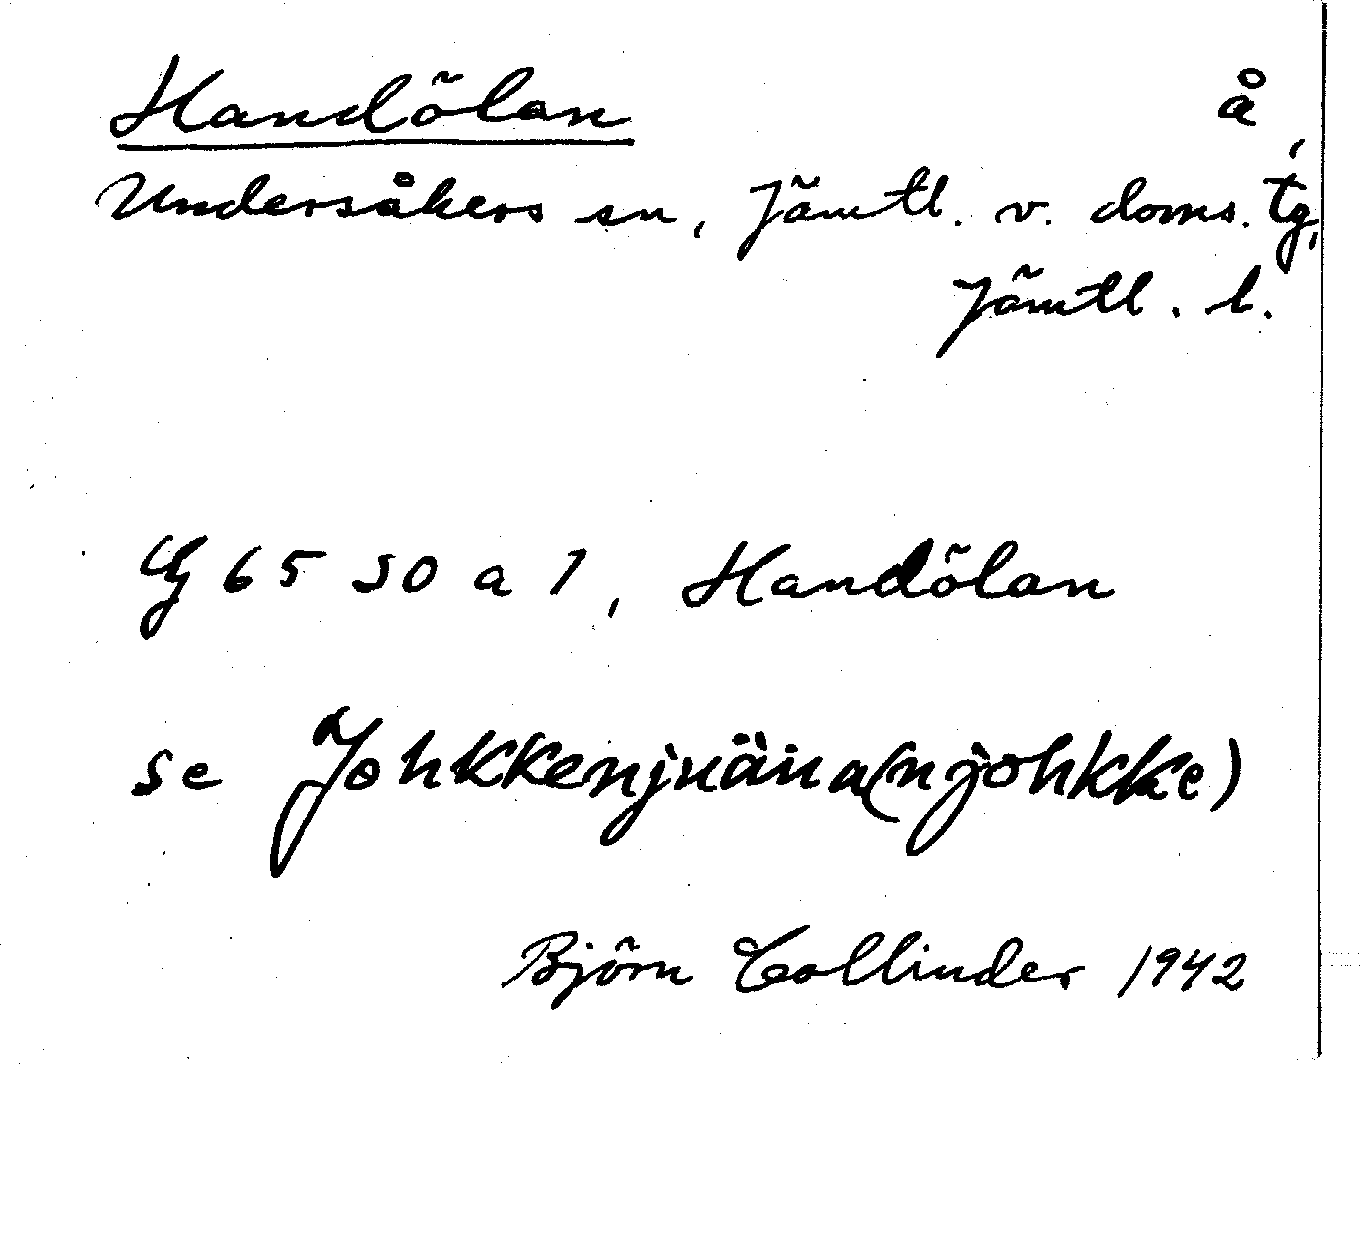 Handölan å,
Undersåkers sn, Jämtl. v. doms. tg,
Jämtl. l.
Cg 65 50 a 1, Handölan
se Johkkenjuäna(njohkke)
Björn Collinder 1942